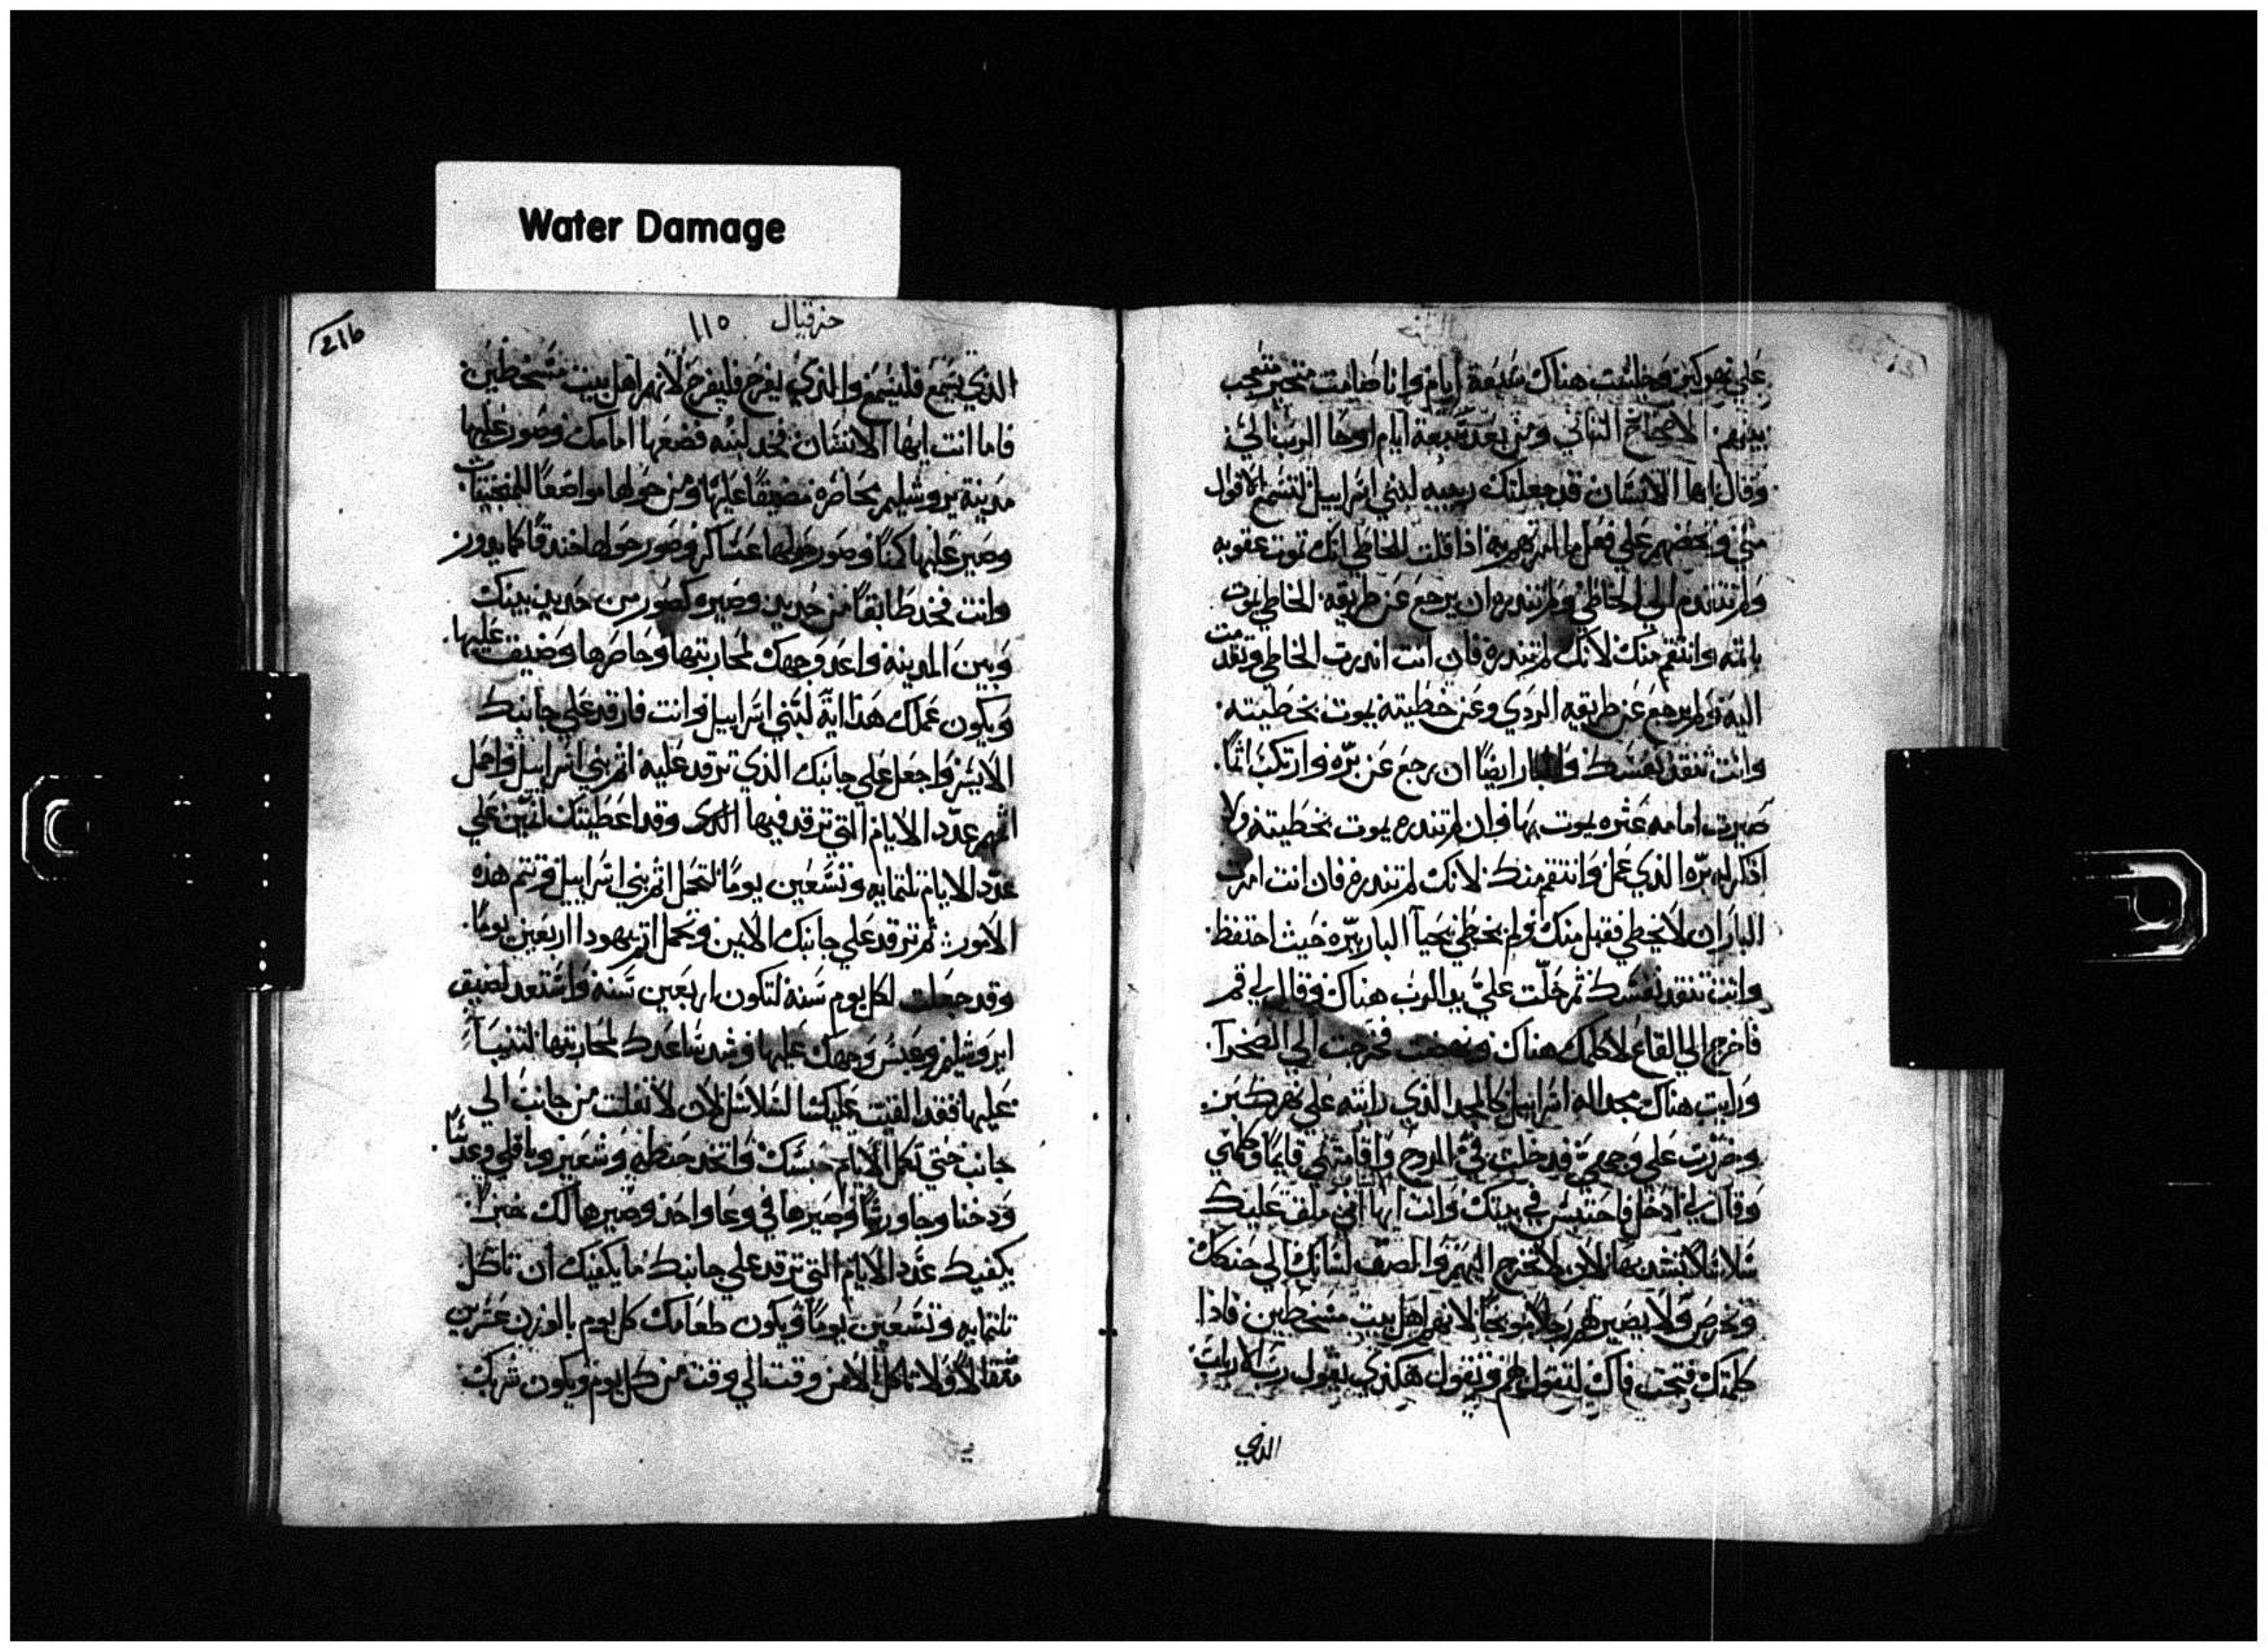 Water Damage
علي نهر كبر وجلست هناك سبعة ايام وانا صامت متحير متعجب
بينهم الاصحاح الثاني ومن بعد سبعة ايام اوحا الرب الي
وقال ايها الانسان قد جعلتك ربيبه لبني اسراييل لتسمع الاقوال
مني وتحضهم علي فعل ما امرتهم به اذا قلت للخاطي انك تموت عقوبه
ولم تتقدم الي الخاطي ولم تنذره ان يرجع عن طريقه الخاطي يموت
باثمه وانتقم منك لانك لم تنذره فان انت انذرت الخاطي وتقدمت
اليه ولم يرجع عن طريقه الردي وعن خطيته يموت بخطيته
وانت تنقد نفسك والبار ايضًا ان رجع عن بره وارتكب اثمًا
صيرت امامه عثره يموت بها وان لم تنذره يموت بخطيته ولا
اذكر له بره الذي عمل وانتقم منك لانك لم تنذره فان انت امرت
البار ان لا يخطي فقبل منك ولم يخطي يحيا البار ببره حيث احتفظ
وانت تنقد نفسك ثم حلت علي يد الرب هناك وقال لي قم
فاخرج الي القاع لاكلمك هناك ونهضت فخرجت الي الصحرا
ورايت هناك مجد اله اسراييل كالمجد الذي رايته علي نهر كبر
وخررت علي وجهي فدخلت في الروح واقامتني قايمًا وكلمني
وقال لي ادخل فاحتبس في بيتك وانت ايها انني ملق عليك
سلاسلا تشد بها لان لا تخرج اليهم والصق لسانك الي حنكك
وتخرص ولا تصير لهم رجلًا موبخًا لانهم اهل بيت مسخطين فاذا
كلمتك فتحت فاك لتقول لهم وتقول هكذي يقول رب الارباب
الذي
حزقيال ١١٥
216
الذي يسمع فليسمع والذي يفرح فليفرح لانهم اهل بيت مسخطين
فاما انت ايها الانسان فخد لبنه فضعها امامك وصور عليها
مدينة يروشليم محاصره مضيقًا عليها ومن حولها مواضعًا للمنجنيقات
وصير عليها كمنًا وصور حولها عساكر وصور حولها خندقًا كما يدور
وانت فخد طابقًا من حديد وصيره كصور من حديد بينك
وبين المدينه واعد وجهك لمحاربتها وحاصرها وضيق عليها
ويكون عملك هذا اية لبني اسراييل وانت فارقد علي جانبك
الايسر واجعل علي جانبك الذي ترقد عليه اثم بني اسراييل واحمل
اثمهم عدد الايام التي ترقد فيها وقد اعطيتك اثنين علي
عدد الايام تلتمايه وتسعين يومًا لتحمل اثم بني اسراييل وتتم هذه
الامور ثم ترقد علي جانبك الايمن وتحمل اثم يهودا اربعين يومًا
وقد جعلت لكل يوم سنة لتكون اربعين سنه واستعد لضيق
ايروشليم وعبس وجهك عليها وشد ساعدك لمحاربتها لتتنبا
عليها فقد القيت عليك سلاسل لان لا تفلت من جانب الي
جانب حتي تكمل الايام حبسك واتخد حنطه وشعير وباقلي وعدسًا
ودخنا وجاورسًا وصيرها في وعا واحد وصيرها لك خبزًا
يكفيك عدد الايام التي ترقد علي جانبك ما يكفيك ان تاكل
تلتمايه وتسعين يومًا ويكون طعامك كل يوم بالوزن عشرين
متقالًا ولا تاكل الا من وقت الي وقت من كل يوم ويكون شربك